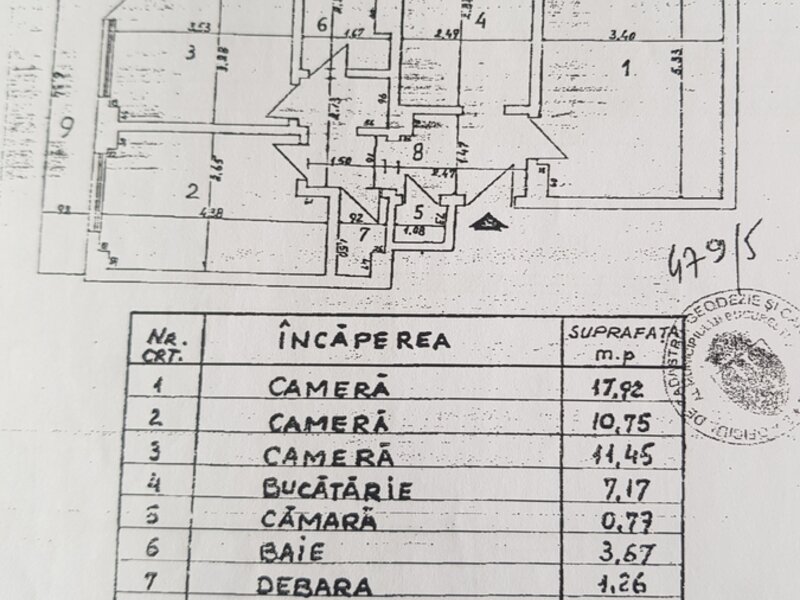 6
4
3
3.53
1.67
2.49
3.40
1
9
2
4.38
1.50
8
1.47
2.47
92
7
5
1.08
92
479/5
NR. CRT. ÎNCĂPEREA SUPRAFAȚA m.p
1 CAMERĂ 17,92
2 CAMERĂ 10,75
3 CAMERĂ 11,45
4 BUCĂTĂRIE 7,17
5 CĂMARĂ 0,77
6 BAIE 3,67
7 DEBARA 1,26
GEODEZIE ȘI